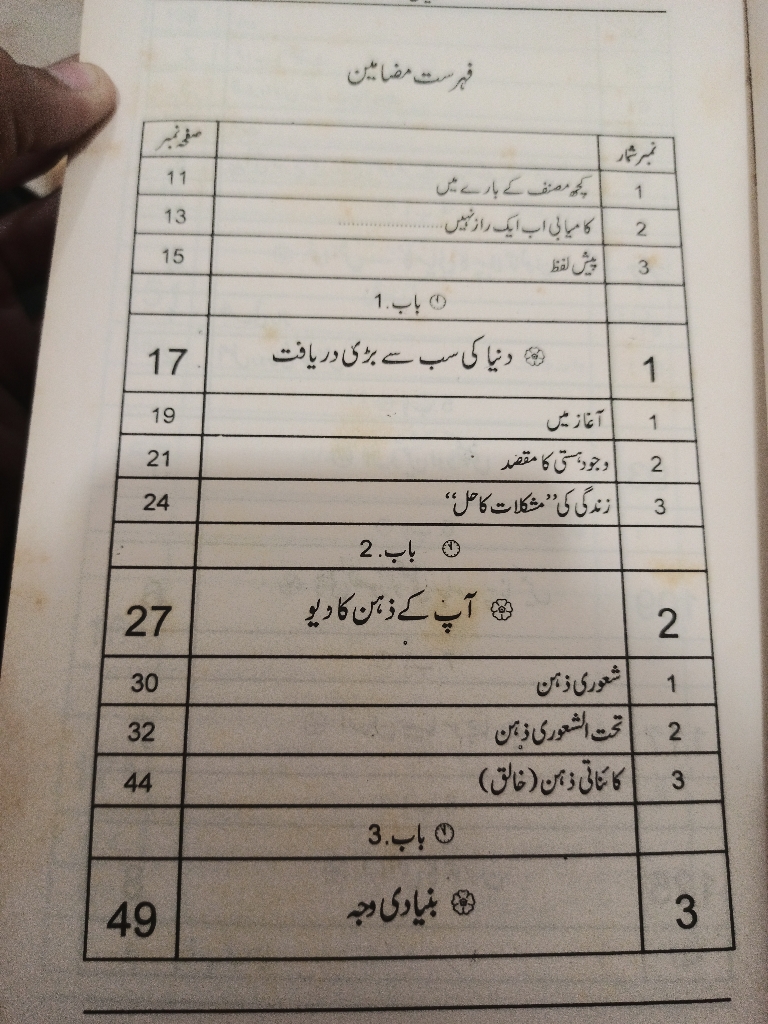 فہرست مضامین
نمبر شمار صفحہ نمبر
1 کچھ مصنف کے بارے میں 11
2 کامیابی اب ایک راز نہیں........................ 13
3 پیش لفظ 15
باب.1
1 دنیا کی سب سے بڑی دریافت 17
1 آغاز میں 19
2 وجود ہستی کا مقصد 21
3 زندگی کی ’’مشکلات کا حل‘‘ 24
باب.2
2 آپ کے ذہن کا دیو 27
1 شعوری ذہن 30
2 تحت الشعوری ذہن 32
3 کائناتی ذہن (خالق) 44
باب.3
3 بنیادی وجہ 49